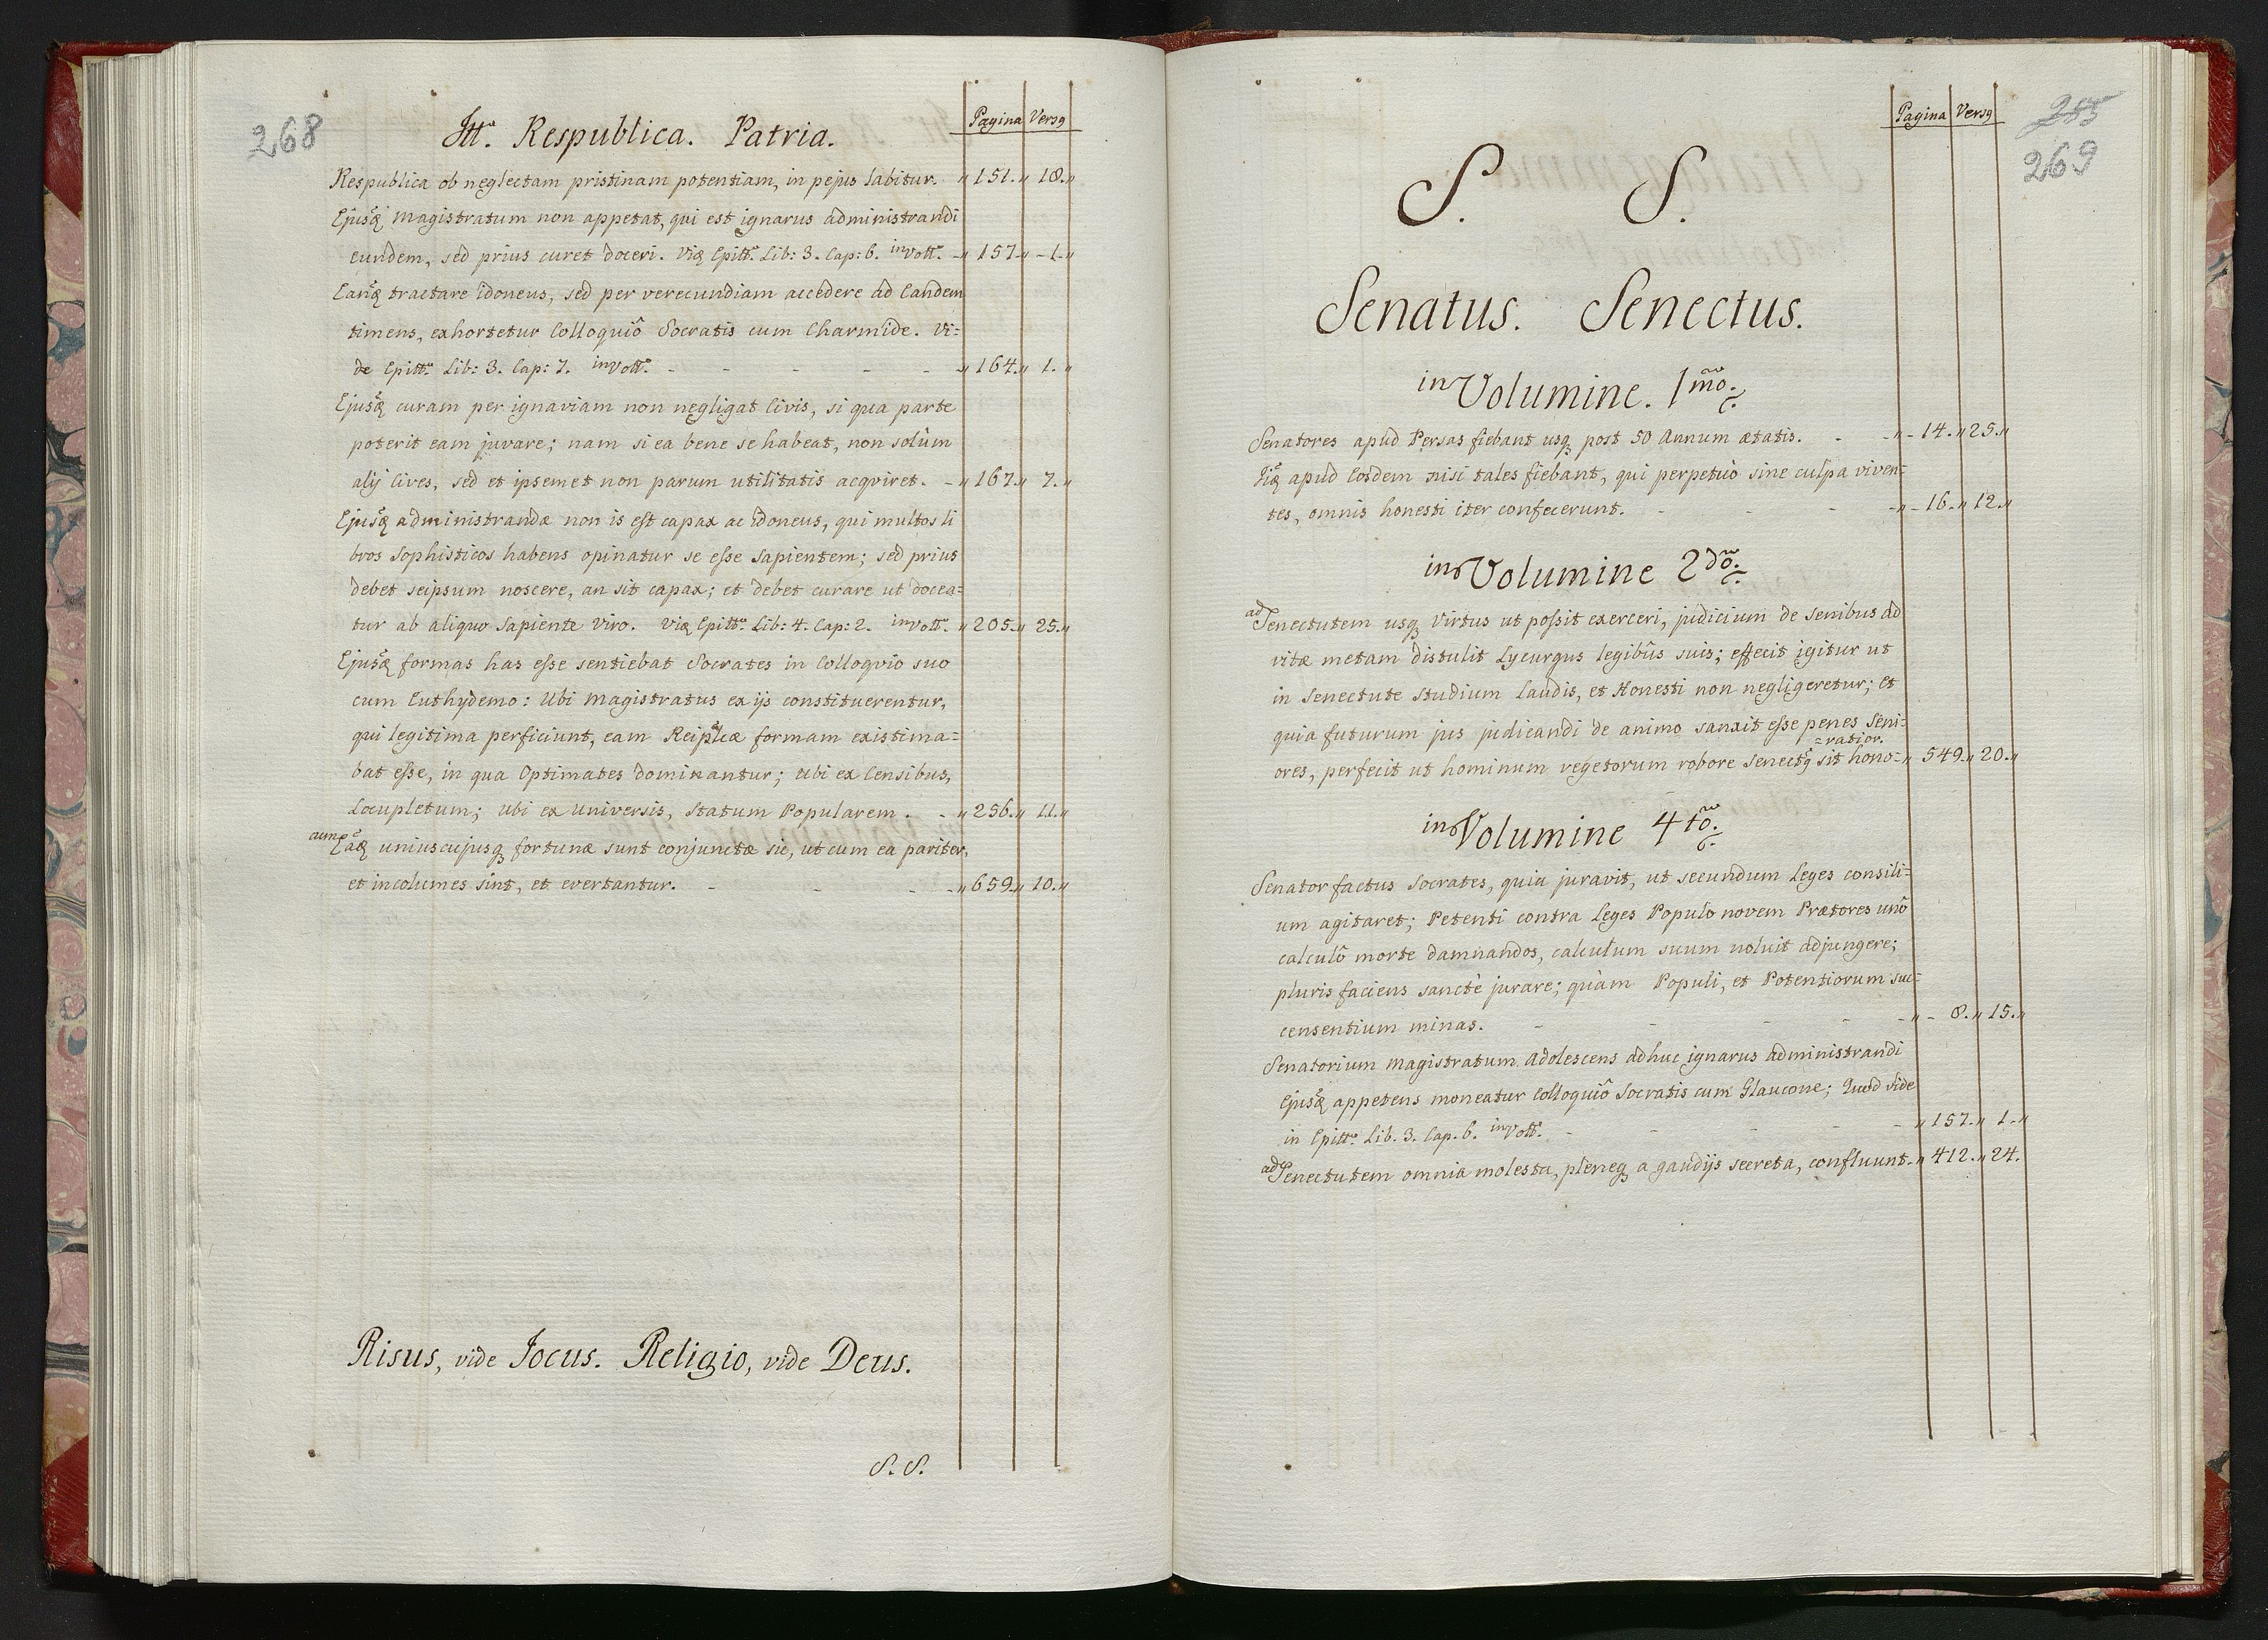 268
Itt. Respublica. Patria.
Pagina Versq
Respublica ob neglectam pristinam potentiam, in pejus labitur. „151.„ 18.„
Ejusq́ Magistratum non appetat, qui est ignarus administrandi
eundem, sed prius curet doceri. Viq Epitt. Lib: 3. Cap: 6. in Vott. -„157.„-1.„
Eanq́ tractare idoneus, sed per verecundiam accedere ad Eandem
timens, exhortetur Colloquiô Socratis cum Charmide. Vi=
de Epitt. Lib: 3. Cap: 7. in Vott. - - - - - „164.„ 1.„
Ejusq́ curam per ignaviam non negligat Civis, si qua parte
poterit eam juvare; nam si ea bene se habeat, non solùm
alij Cives, sed et ipsemet non parum utilitatis acqviret. -„167.„ 7.„
Ejusq́ administrandæ non is est capax ac idoneus, qui multos li
bros Sophisticos habens opinatur se esse Sapientem; sed prius
debet seipsum noscere, an sit capax; et debet curare ut docea=
tur ab aliquo Sapiente Viro. Viq Epitt. Lib: 4. Cap: 2. in Vott. „205.„ 25.„
Ejusq́ formas has esse sentiebat Socrates in Colloqvio suo
cum Euthydemo: Ubi Magistratus ex ijs constituerentur,
qui legitima perficiunt, eam Reiplcæ formam existima=
bat esse, in qua Optimates dominantur; ubi ex Censibus,
Locupletum; ubi ex Universis, Statum Popularem. -„256.„ 11.„
cum Eaq́ uniuscujusq fortunæ sunt conjunctæ sic, ut cum ea pariter,
et incolumes sint, et evertantur. - - - -„659.„ 10.„
Risus, vide Jocus. Religio, vide Deus.
S. S.
Pagina Versq
255
269
S. S.
Senatus. Senectus.
in Volumine. 1mo.
Senatores apud Persas fiebant usq post 50 Annum ætatis. - -„- 14.„ 25.„
Iiq́ apud Eosdem nisi tales fiebant, qui perpetuò sine culpa viven=
tes, omnis honesti iter confecerunt. - - -„- 16.„ 12.„
in Volumine 2do.
ad Senectutem usq Virtus ut possit exerceri, judicium de Senibus ad
vitæ metam distulit Lycurgus legibûs suis; effecit igitur ut
in Senectute studium Laudis, et Honesti non negligeretur; et
quia futurum jus judicandi de animo sanxit esse penes Seni=
=ratior.
ores, perfecit ut hominum vegetorum robore Senectq sit hono=„ 549.„ 20.„
in Volumine 4to.
Senator factus Socrates, quia juravit, ut secundum Leges consili=
um agitaret; Petenti contra Leges Populo novem Prætores unô
calculô morte damnandos, calculum suum noluit adjungere;
pluris faciens sanctè jurare; quàm Populi, et Potentiorum suc=
censentium minas. - - - - -„- 8.„ 15.„
Senatorium Magistratum Adolescens adhuc ignarus administrandi
Ejusq́ appetens moneatur Colloquiô Socratis cum Glaucone; Quod vide
in Epitt. Lib. 3. Cap. 6. in Vott. - - - - - „157.„ 1.„
ad Senectutem omnia molesta, pleneq a gaudijs secreta, confluunt.„ 412.„ 24.